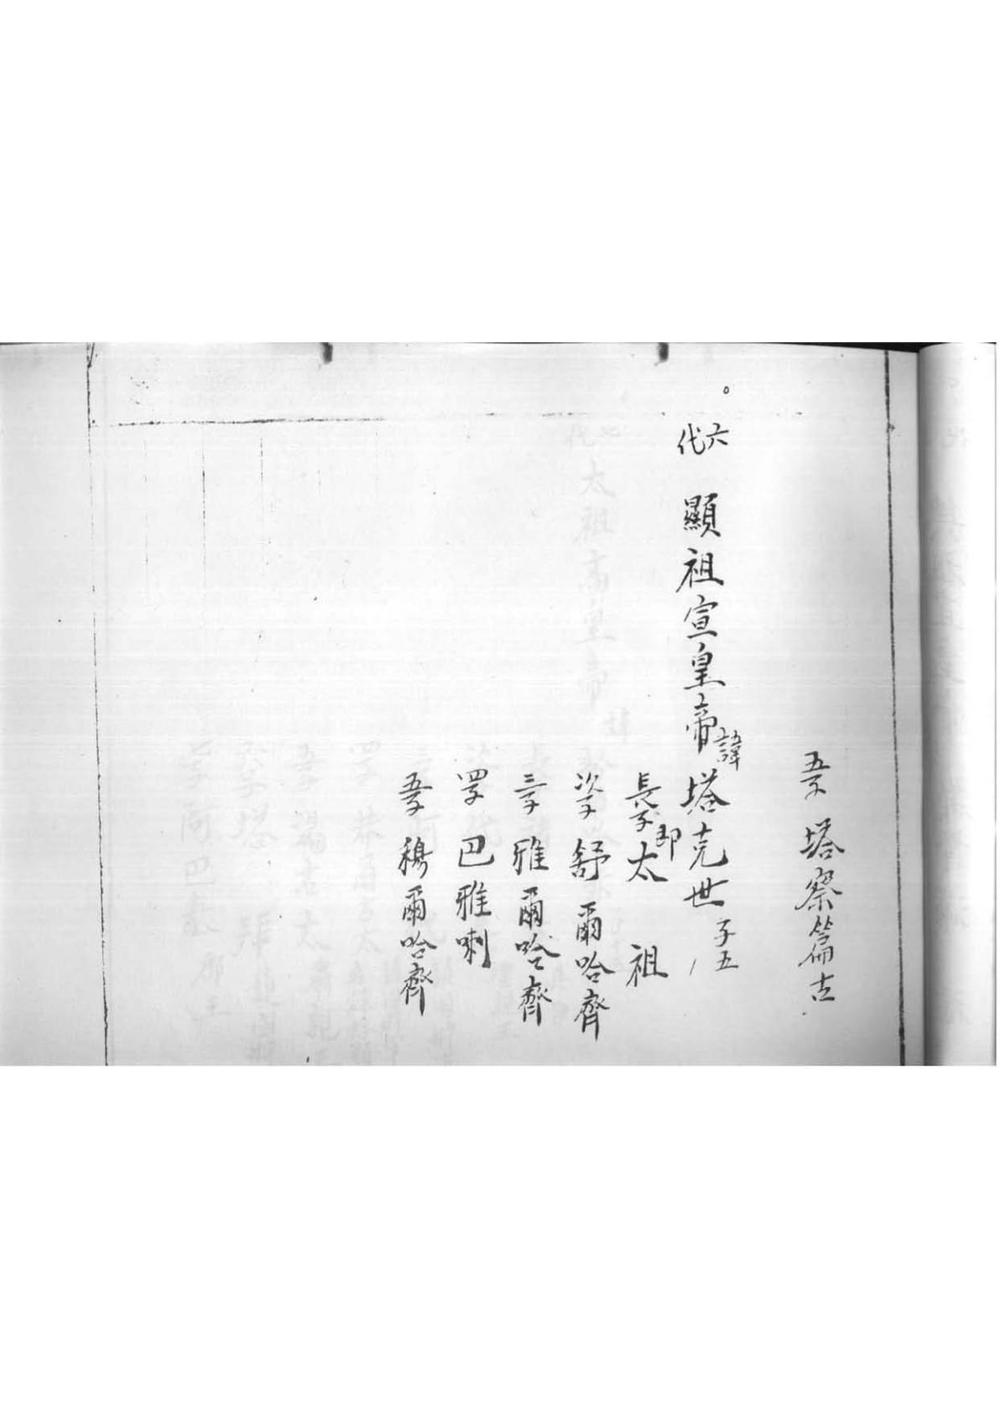 五子 塔察篇古
。六代 顯祖宣皇帝諱塔克世 子五
長子即太祖
次子舒爾哈齊
三子雅爾哈齊
四子巴雅喇
五子穆爾哈齊